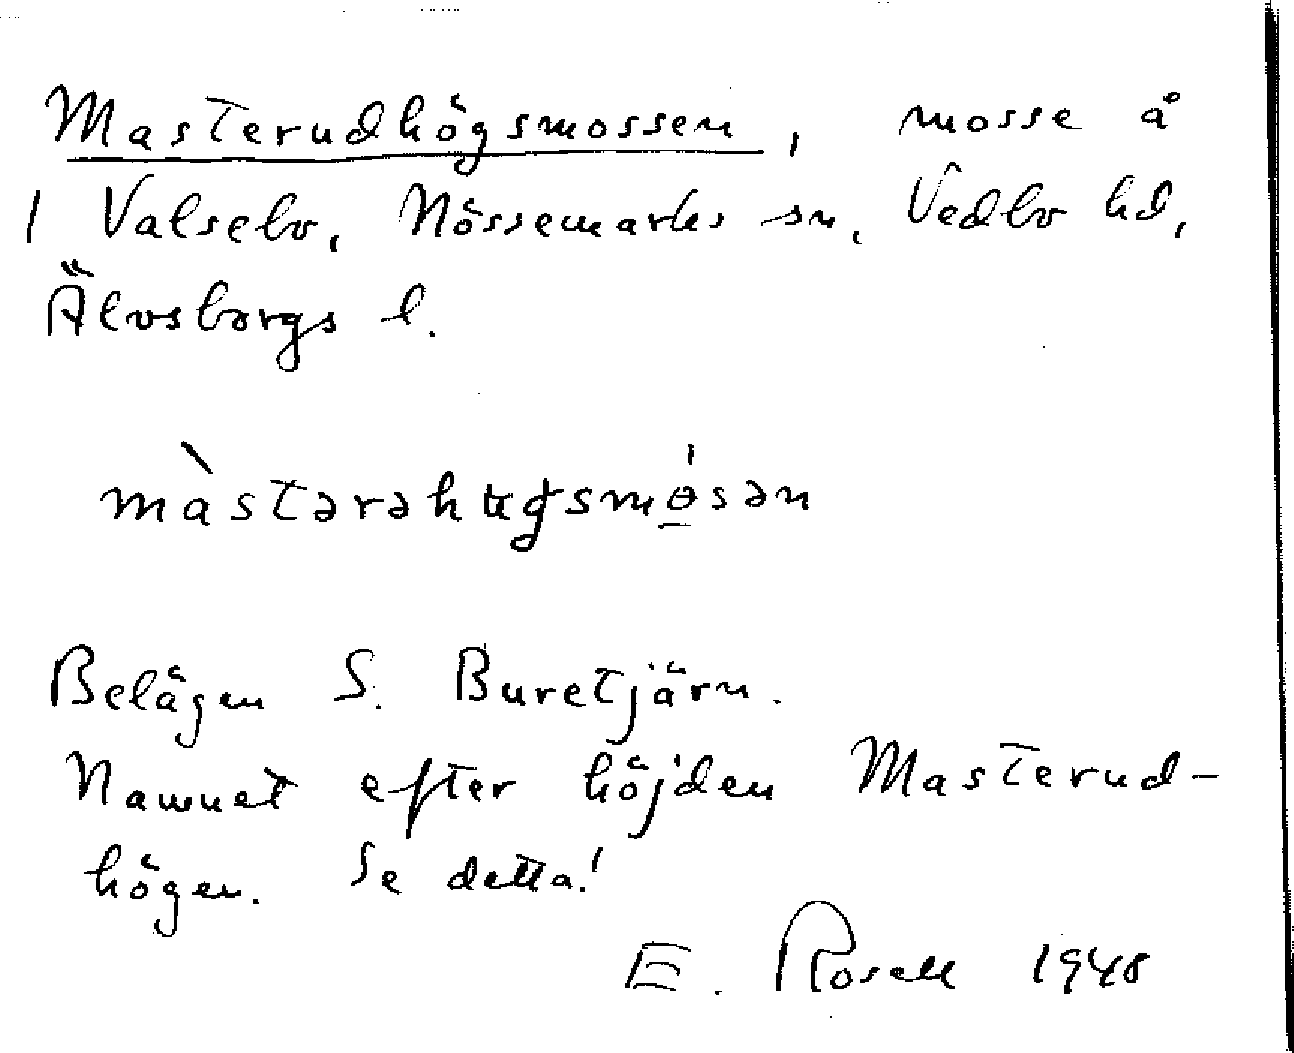 Masterudhögsmossen, mosse å
1 Valsebo, Nössemarks sn, Vedbo hd,
Älvsborgs l.
màstərəhʉgsmó̲sən
Belägen S. Buretjärn.
Namnet efter höjden Masterud-
högen. Se detta!
E. Rosell 1948